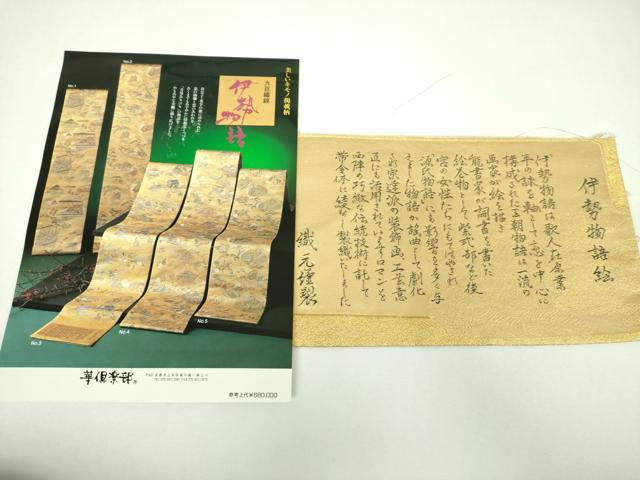 美しいキモノ掲載柄
九百織錦
伊勢物語
No.1
No.2
No.3
No.4
No.5
参考上代¥680,000
伊勢物語絵
伊勢物語は歌人在原業
平の詠を軸として恋を中心に
構成された王朝物語は一流の
画家が絵を描き
能書家が詞書を書いた
絵巻物として紫式部など後
宮の女性たちにもてはやされ
源氏物語にも影響を多く与
えました物語が謡曲として劇化
され宗達派の装飾画工芸意
匠にも活用されていますロマンを
西陣の巧緻な伝統技術に託して
帯全体に綾なし製織いたしました
織元謹製